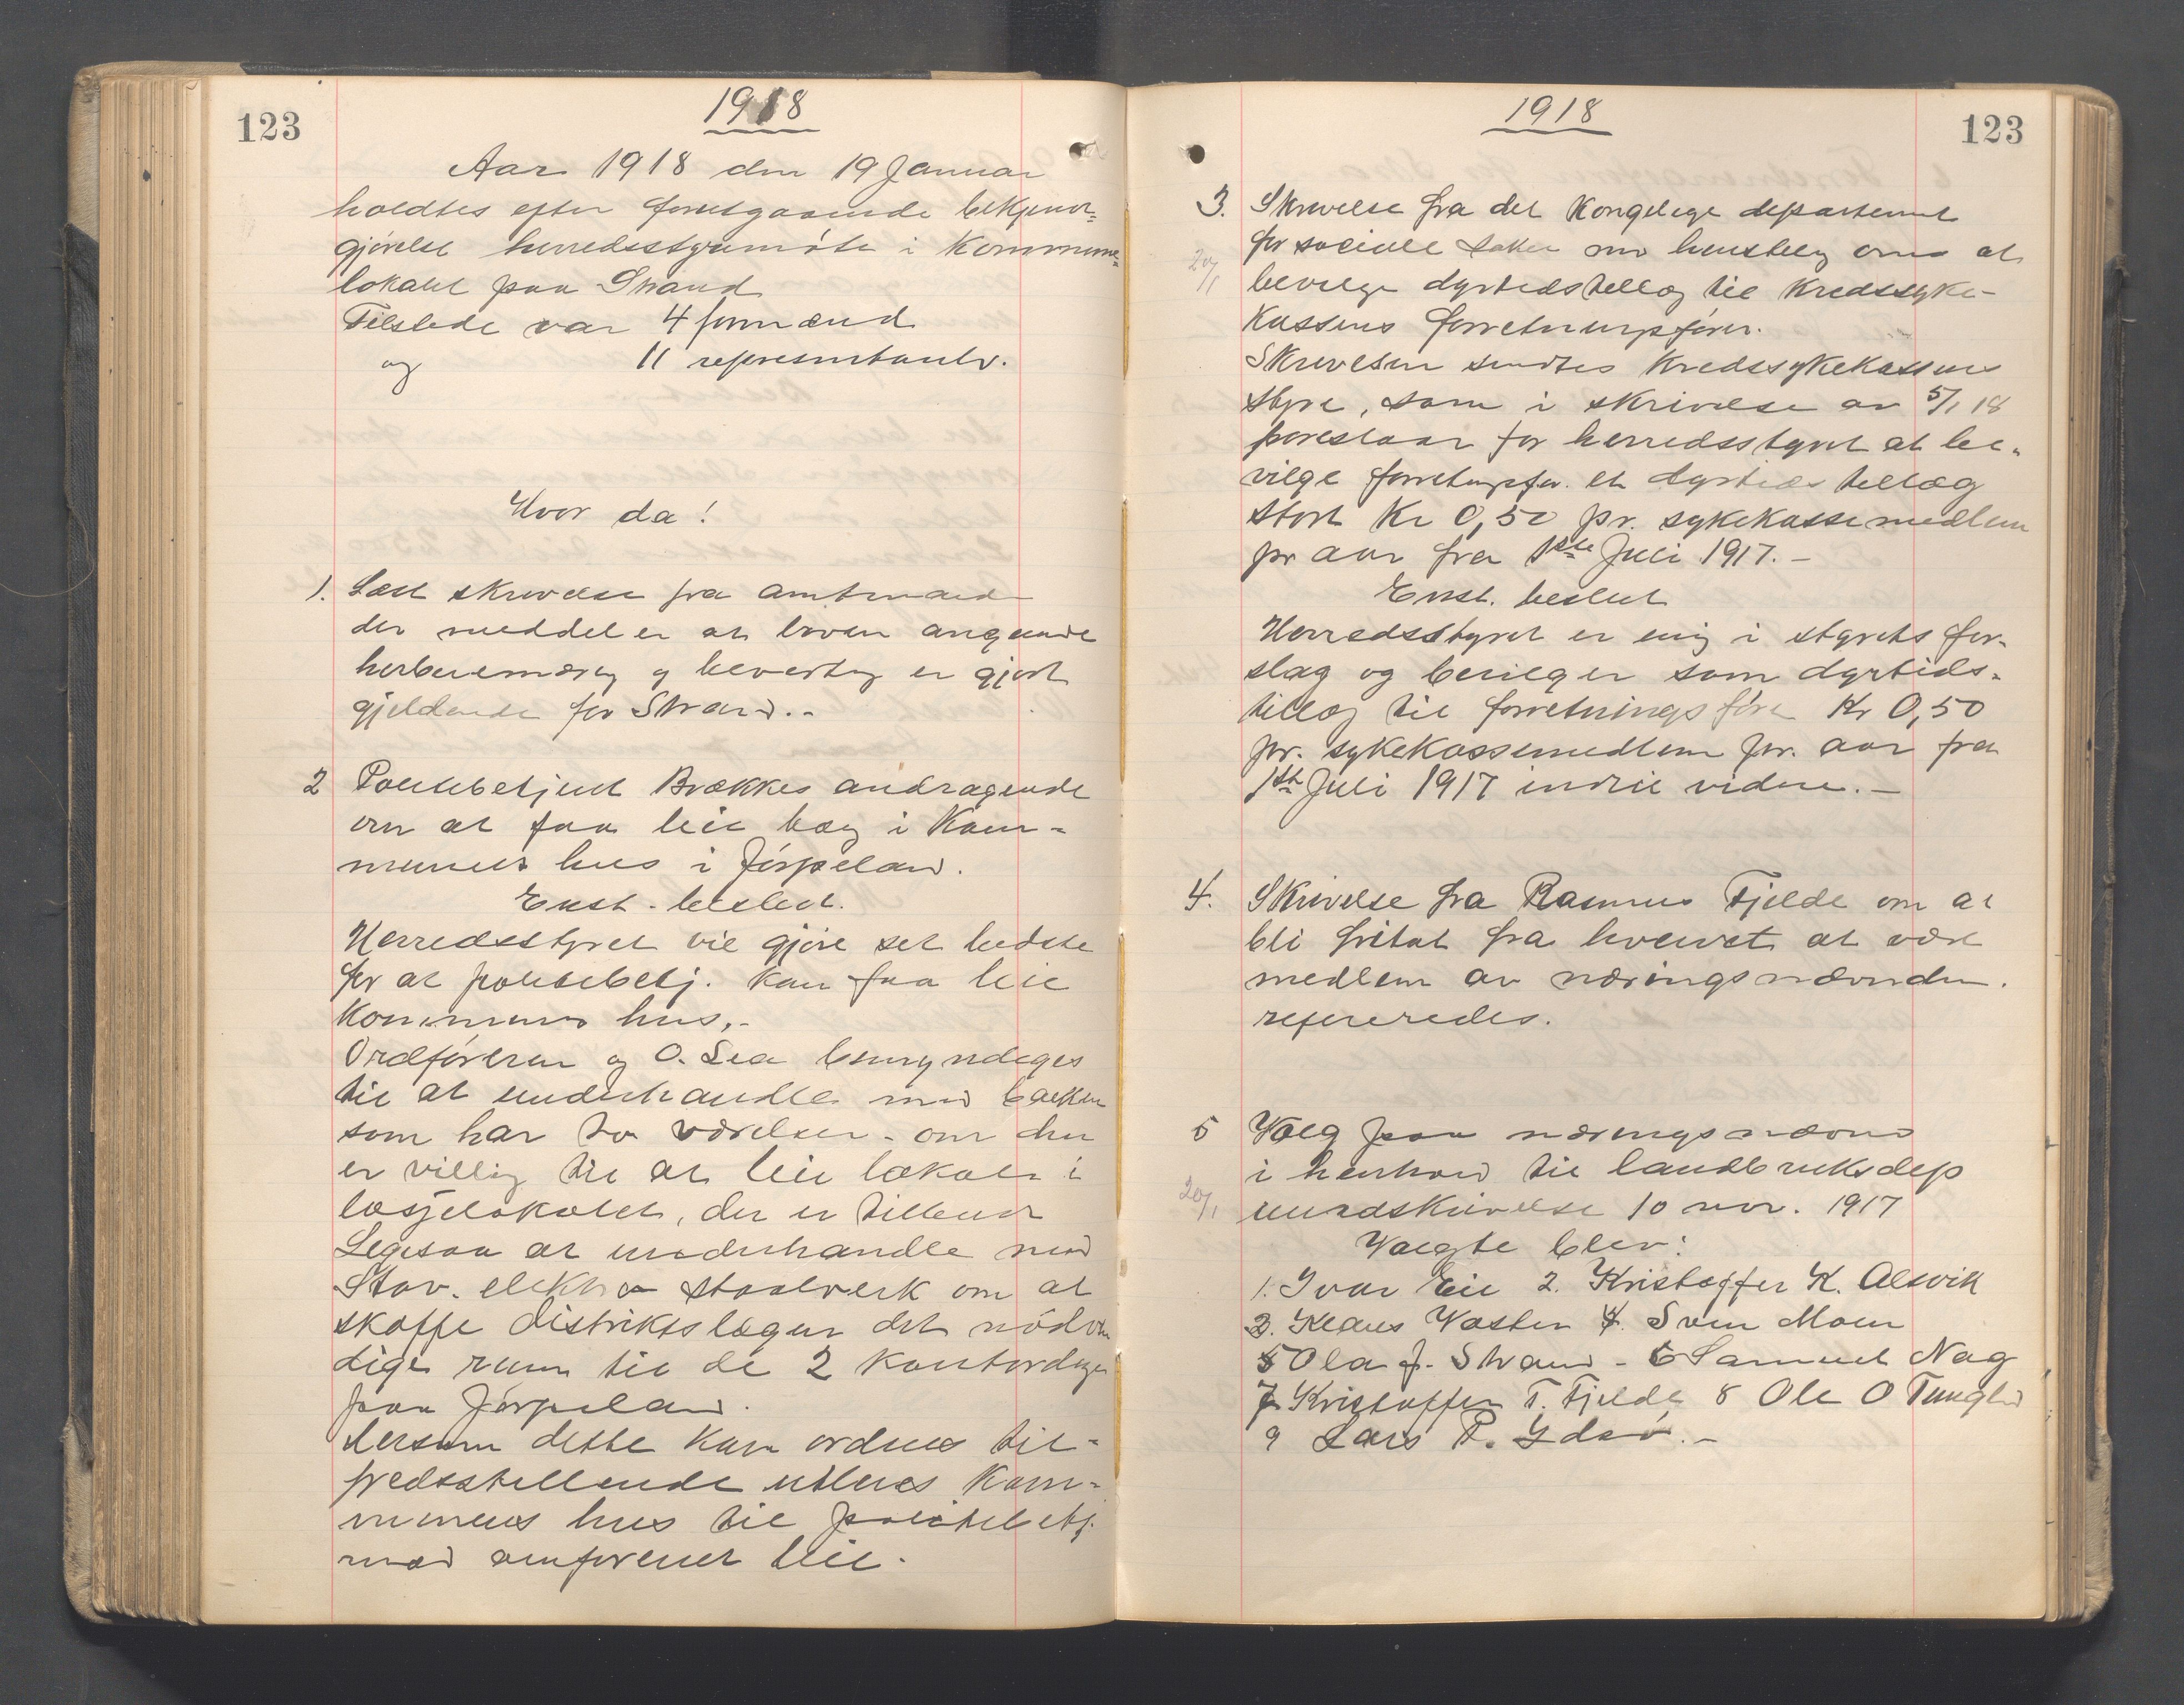 123
1918
Aar 1918 den 19 Januar
holdtes efter forutgaaende bekjendt=
gjørelse herredsstyremøte i Kommune=
lokalet paa Strand
Tilstede var 4 formænd
og 11 representanter.
Hvor da!
1. Læst skrivelse fra amtmand
der meddeler at loven angaaende
herbergenæring og bevertng er gjort
gjeldende for Strand.-
2 Politibetjent Brækkes andragende
om at faa leie bolig i Kom=
munens hus i Jørpeland.
Enst. beslut.
Herredsstyret vil gjøre set bedste
for at politibetj. kan faa leie
Kommunens hus.-
Ordføreren og O. Lea bemyndiges
til at underhandle med banken
som har to værelser - om den
er villig til at leie lokale i
losjelokalet, der er tilbudt
Legesaa at underhandle med
Stav. elektro staalverk om at
skaffe distriktslægen det nødven
dige rum til de 2 kontordage
paa Jørpeland.
dersom dette kan ordnes til=
fredsstillende utleies Kom=
munens hus til politibetj.
mod omforenet leie.
1918
123
3. Skrivelse fra det Kongelige departement
for sociale saker med henstilling om at
20/1
bevilge dyrtidstillæg til Kredssyke-
kassens forretningsfører.
Skrivelsen sendtes Kredssykekassens
styre, som i skrivelse av 5/1 18
foreslaar for herredsstyret at be=
vilge forretngsfør. et dyrtids tillæg
stort Kr 0,50 pr. sykekassemedlem
pr aar fra 1ste Juli 1917.-
Enst. beslut
Herredsstyret er enig i styrets for=
slag og bevilger som dyrtids=
tillæg til forretningsfører Kr 0,50
pr. sykekassemedlem pr. aar fra
1ste Juli 1917 indtil videre.-
4. Skrivelse fra Rasmus Fjelde om at
bli fritat fra hvervet at være
medlem av næringsnævnden.
refereredes.
5 Valg paa næringsnævnd
i henhold til landbruksdep
20/1
rundskrivelse 10 nov. 1917
Valgte blev:
1. Ivar Eie 2. Kristoffer K. Alsvik
3. Klaus Vasten 4. Sven Moen
5 Ola J. Strand - 6 Samuel Nag
7 Kristoffer T. Fjelde 8 Ole O Tungland
9 Lars P. Idsø.-